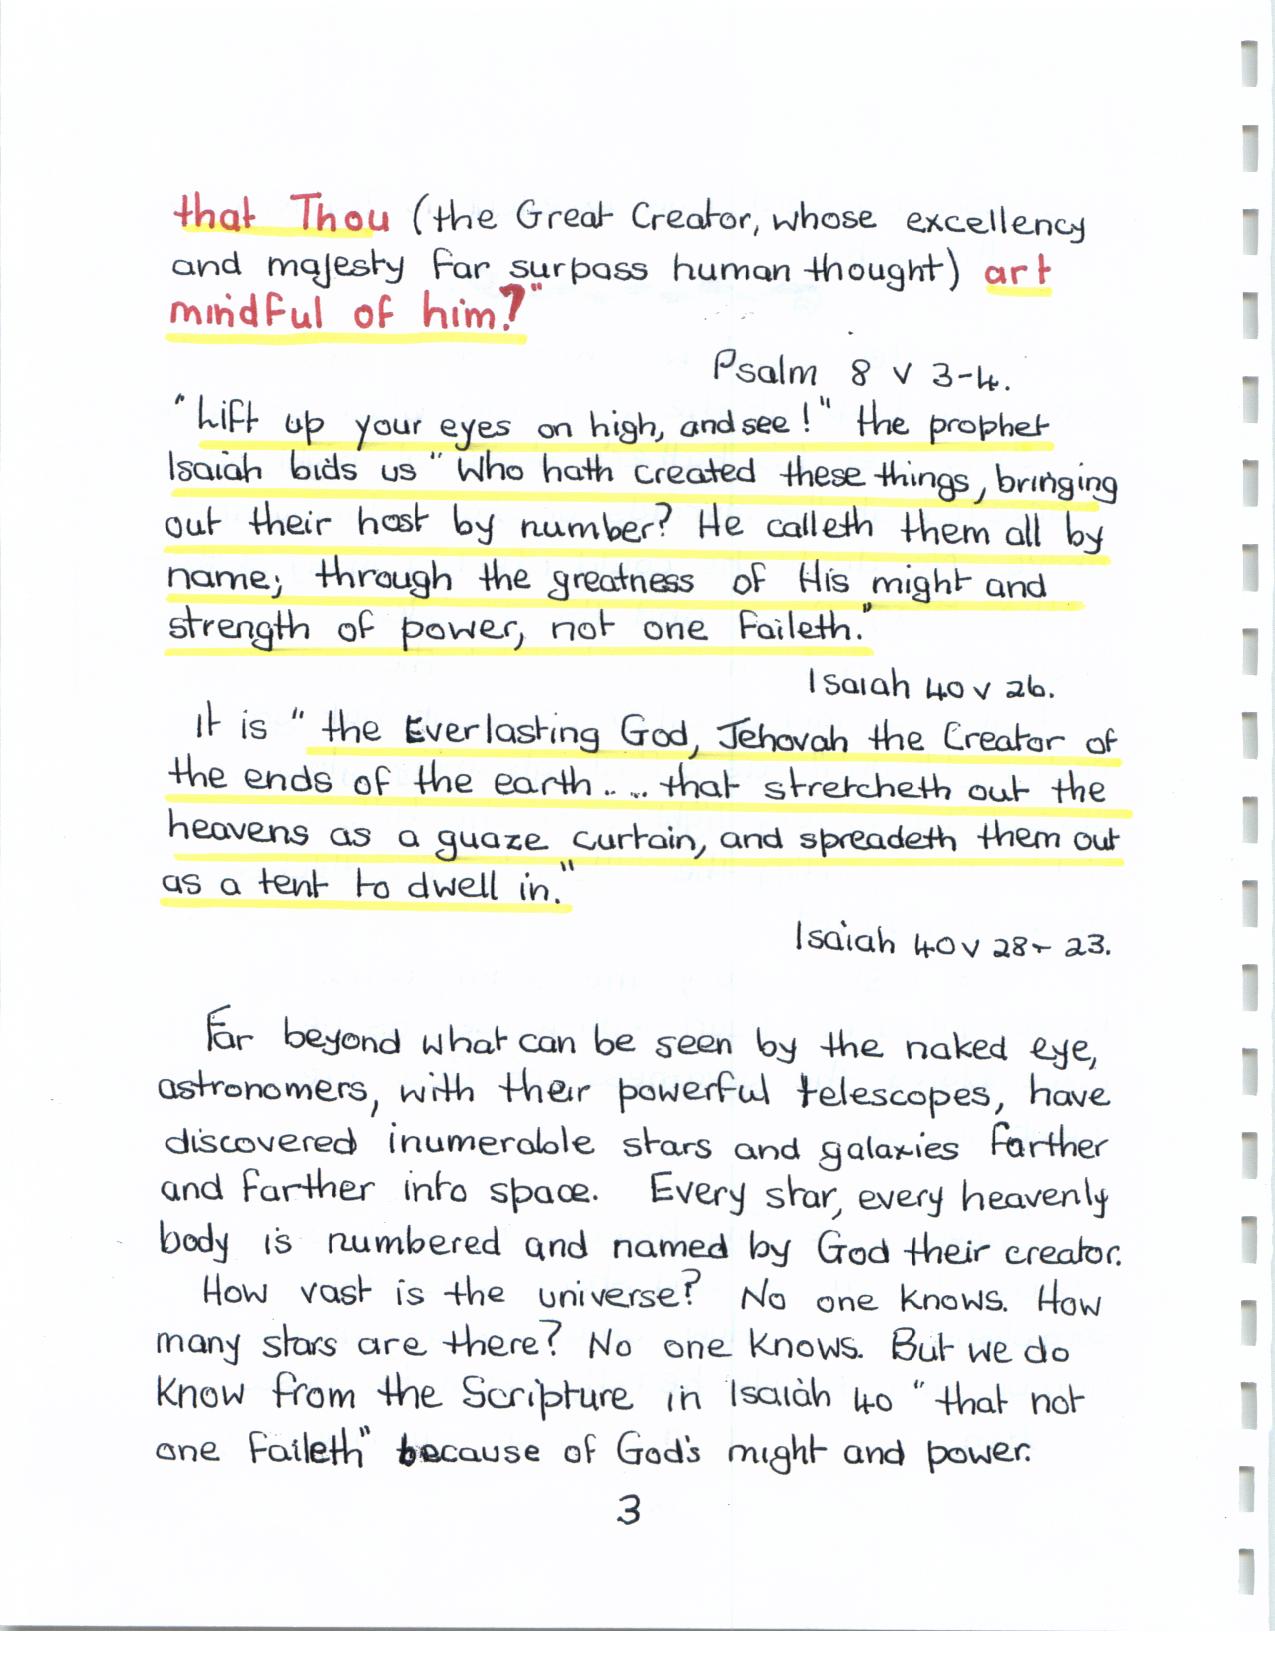 that Thou (the Great Creator, whose excellency
and majesty far surpass human thought) art
mindful of him?"
Psalm 8 v 3-4.
"Lift up your eyes on high, and see!" the prophet
Isaiah bids us "Who hath created these things, bringing
out their host by number? He calleth them all by
name; through the greatness of His might and
strength of power, not one faileth."
Isaiah 40 v 26.
It is "the Everlasting God, Jehovah the Creator of
the ends of the earth.. ... that stretcheth out the
heavens as a guaze curtain, and spreadeth them out
as a tent to dwell in."
Isaiah 40 v 28- 23.
Far beyond what can be seen by the naked eye,
astronomers, with their powerful telescopes, have
discovered inumerable stars and galaxies farther
and farther into space. Every star, every heavenly
body is numbered and named by God their creator.
How vast is the universe? No one knows. How
many stars are there? No one knows. But we do
know from the Scripture in Isaiah 40 "that not
one faileth" because of God's might and power.
3